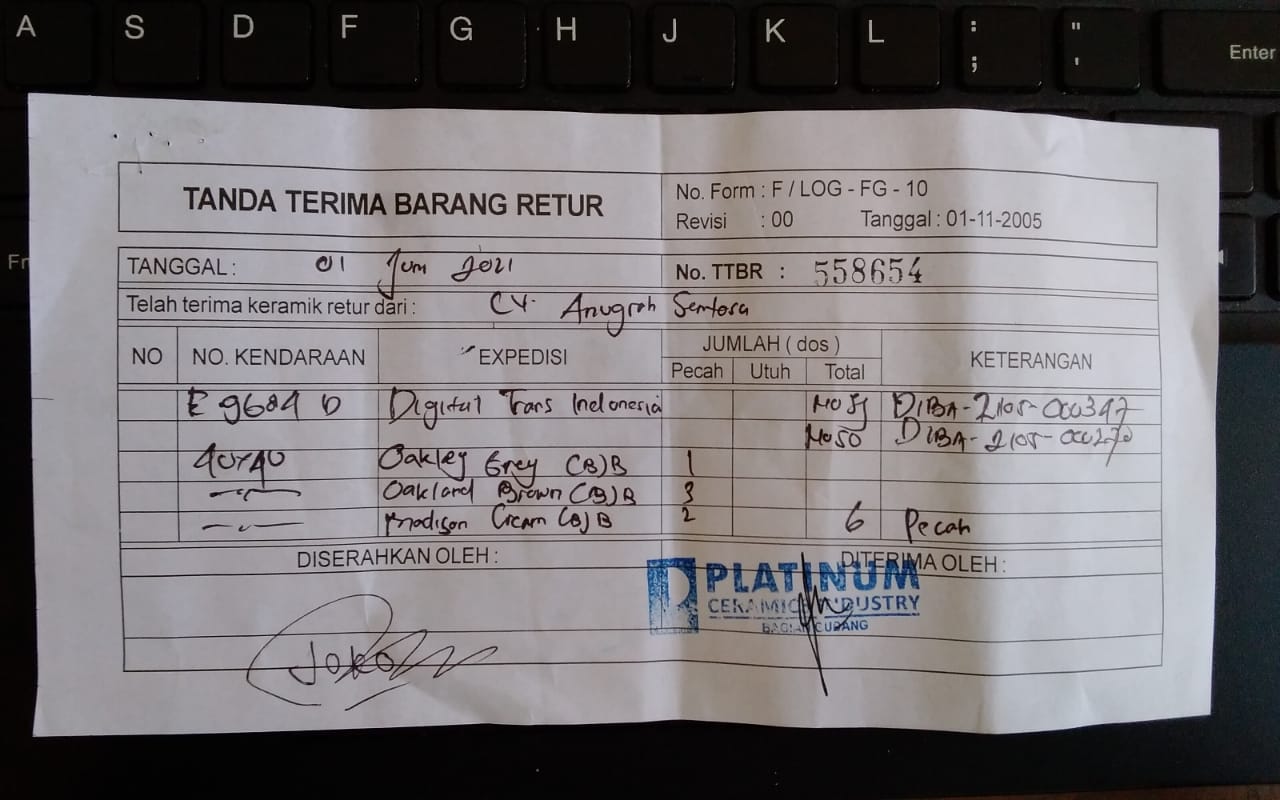 A S D F G H J K L : ; " ' Enter
Fn
TANDA TERIMA BARANG RETUR
No. Form : F / LOG - FG - 10
Revisi : 00 Tanggal : 01-11-2005
TANGGAL : 01 Juni 2021 No. TTBR : 558654
Telah terima keramik retur dari : CV. Anugrah Sentosa
NO NO. KENDARAAN EXPEDISI JUMLAH ( dos ) KETERANGAN
Pecah Utuh Total
E 9684 D Digital Trans Indonesia DIBA-2105-000347
M050 DIBA-2105-000270
40x40 Oakley Grey (B)B 1
Oakland Brown (B)B 3
Madison Cream (B)B 2 6 Pecah
DISERAHKAN OLEH : DITERIMA OLEH :
PLATINUM
CERAMICS INDUSTRY
BAGIAN GUDANG
JOKO